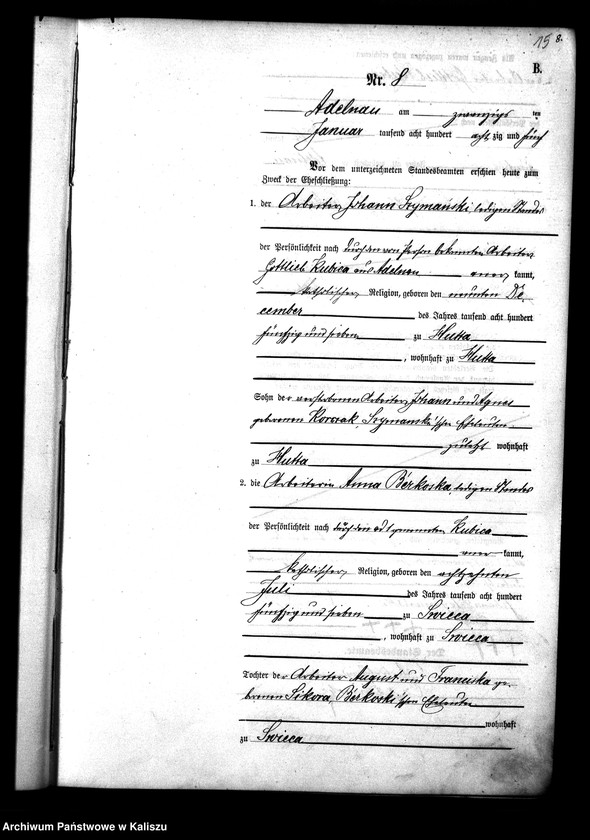 15 8.
B.
Nr. 8
Adelnau am zwanzigs ten
Januar tausend acht hundert acht zig und fünf
Vor dem unterzeichneten Standesbeamten erschien heute zum
Zweck der Eheschließung:
1. der Arbeiter Johann Szymański, ledigen Standes
der Persönlichkeit nach durch den von Person bekannten Arbeiter
Gottlieb Kubica aus Adelnau aner kannt,
katholischer Religion, geboren den neunten De
cember des Jahres tausend acht hundert
fünfzig und sieben zu Hutta
, wohnhaft zu Hutta
Sohn der verstorbenen Arbeiter Johann und Agnes
geborenen Korczak, Szymanski'schen Eheleuten
zuletzt wohnhaft
zu Hutta
2. die Arbeiterin Anna Berkoska, ledigen Standes
der Persönlichkeit nach durch den ad 1 genannten Kubica
aner kannt,
katholischer Religion, geboren den achtzehnten
Juli des Jahres tausend acht hundert
fünfzig und sieben zu Swieca
, wohnhaft zu Swieca
Tochter der Arbeiter August und Franciska ge-
borenen Sikora, Berkoski'schen Eheleute
wohnhaft
zu Swieca
Archiwum Państwowe w Kaliszu